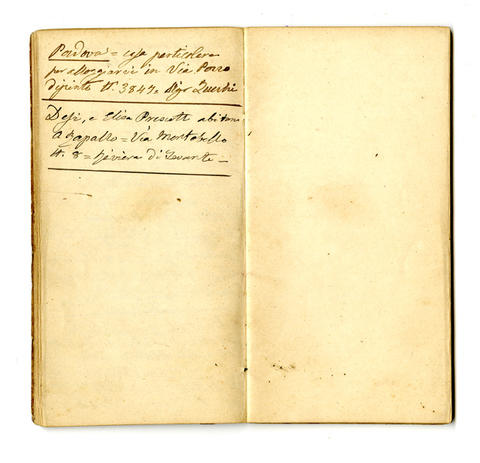 Padova = casa particolare
per alloggiarsi in Via Pozzo
dipinto N. 3847 Sigr
Desi, e Elisa Prescott abitano
a Rapallo = Via Montebello
N. 8 = Riviera di Levante _